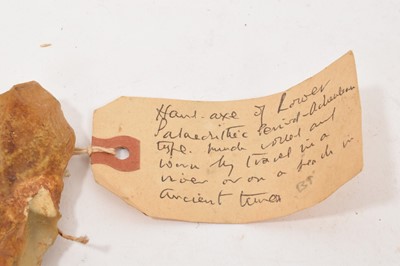 Hand-axe of Lower
Palaeolithic Period-Acheulean
type. much rolled and
worn by travel in a
river or on a beach in
ancient times